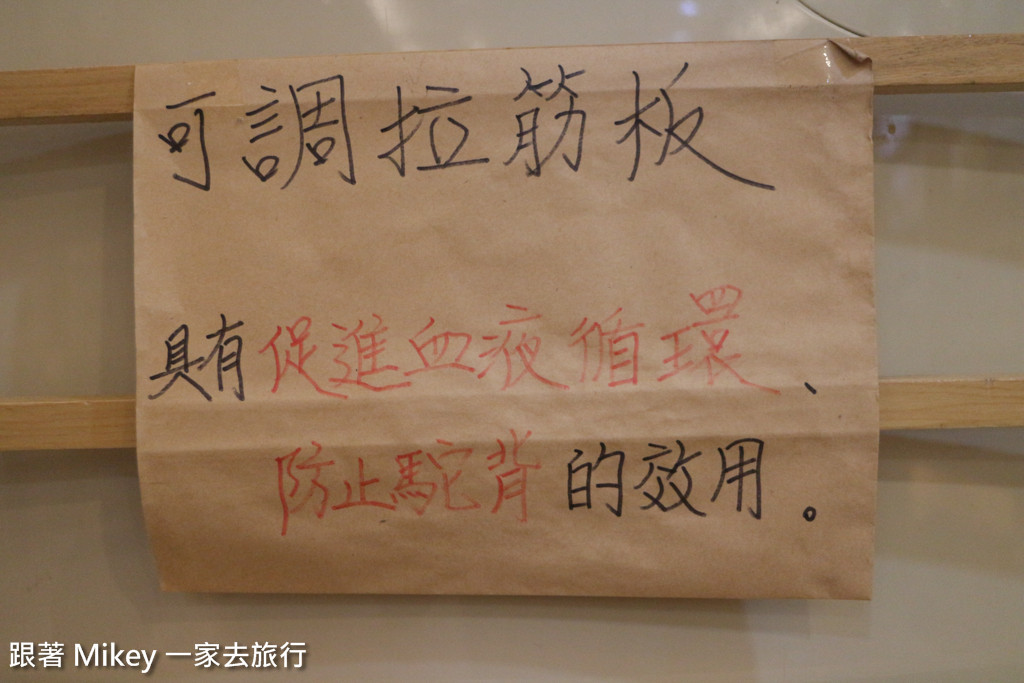 可調拉筋板
具有促進血液循環、
防止駝背的效用。
跟著 Mikey 一家去旅行